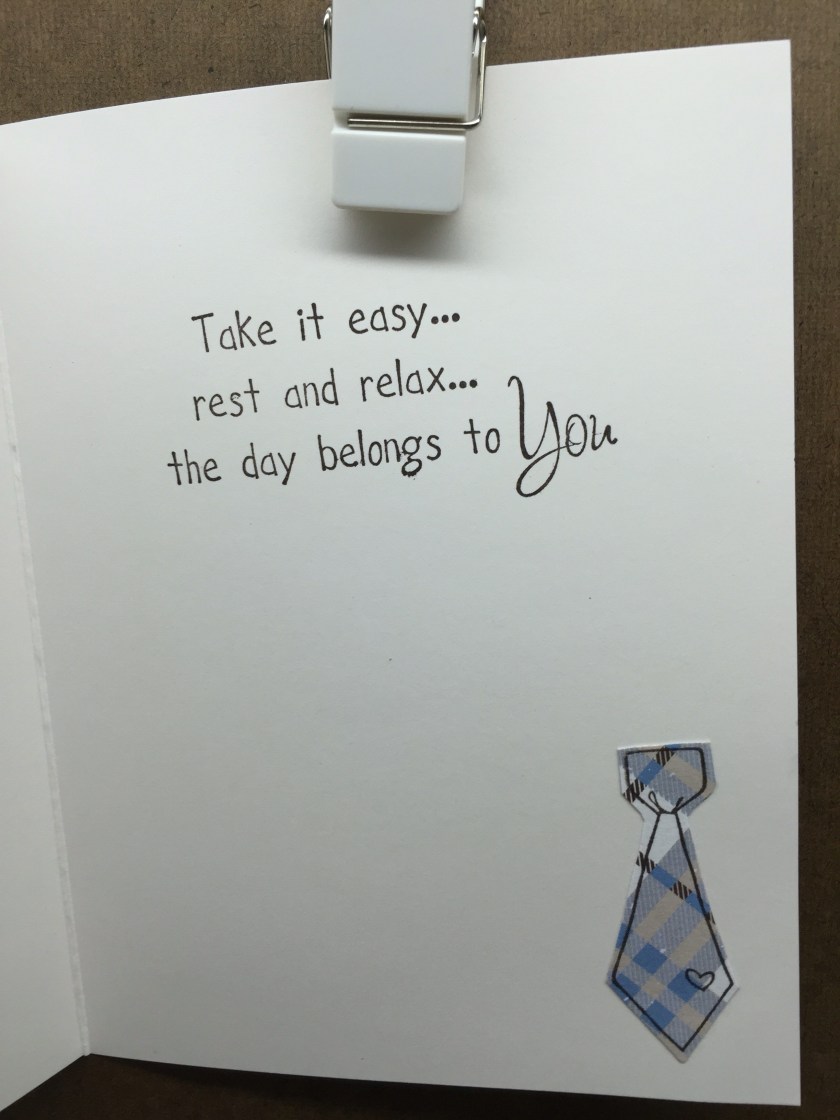 Take it easy...
rest and relax...
the day belongs to You